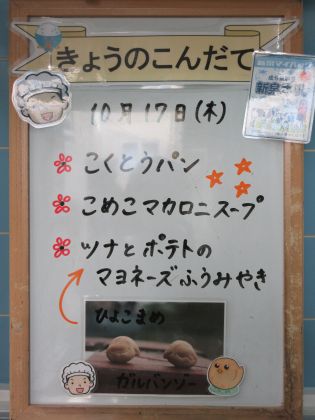 きょうのこんだて
10月17日(木)
こくとうパン
こめこマカロニスープ
ツナとポテトの
マヨネーズふうみやき
ひよこまめ
ガルバンゾー